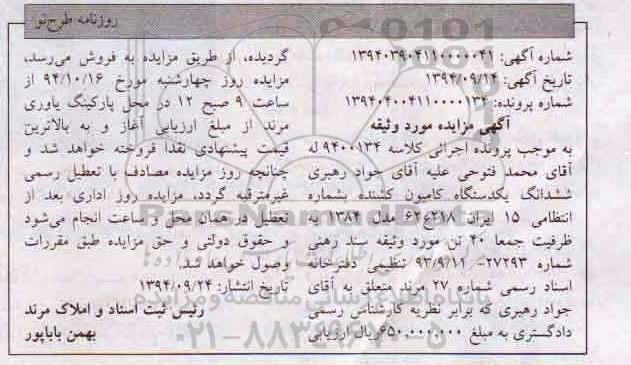 روزنامه طرح‌نو
شماره آگهی: ۱۳۹۴۰۳۹۰۴۱۱۰۰۰۰۰۴۱
تاریخ آگهی: ۱۳۹۴/۰۹/۱۴
شماره پرونده: ۱۳۹۴۰۴۰۰۴۱۱۰۰۰۰۱۳۲
آگهی مزایده مورد وثیقه
به موجب پرونده اجرائی کلاسه ۹۴۰۰۱۳۴ له
آقای محمد فتوحی علیه آقای جواد رهبری
ششدانگ یکدستگاه کامیون کشنده بشماره
انتظامی ۱۵ ایران ۲۱۸ع۶۲ مدل ۱۳۸۴ به
ظرفیت جمعا ۴۰ تن مورد وثیقه سند رهنی
شماره ۲۷۲۹۳- ۹۳/۹/۱۱ تنظیمی دفترخانه
اسناد رسمی شماره ۲۷ مرند متعلق به آقای
جواد رهبری که برابر نظریه کارشناس رسمی
دادگستری به مبلغ ۶۵۰,۰۰۰,۰۰۰ریال ارزیابی
گردیده، از طریق مزایده به فروش می‌رسد،
مزایده روز چهارشنبه مورخ ۹۴/۱۰/۱۶ از
ساعت ۹ صبح ۱۲ در محل پارکینگ یاوری
مرند از مبلغ ارزیابی آغاز و به بالاترین
قیمت پیشنهادی نقدا فروخته خواهد شد و
چنانچه روز مزایده مصادف با تعطیل رسمی
غیرمترقبه گردد، مزایده روز اداری بعد از
تعطیل در همان محل و ساعت انجام می‌شود
و حقوق دولتی و حق مزایده طبق مقررات
وصول خواهد شد.
تاریخ انتشار: ۱۳۹۴/۰۹/۲۴
رئیس ثبت اسناد و املاک مرند
بهمن باباپور
ParsNamadData
پایگاه اطلاع رسانی مناقصه و مزایده